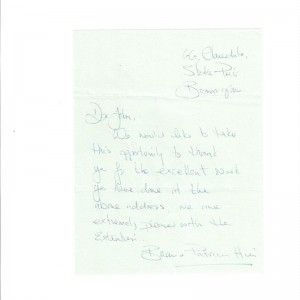 Dear John,
We would like to take
this opportunity to thank
you for the excellent work
you have done at the
above address. We are
extremely pleased with the
Extension